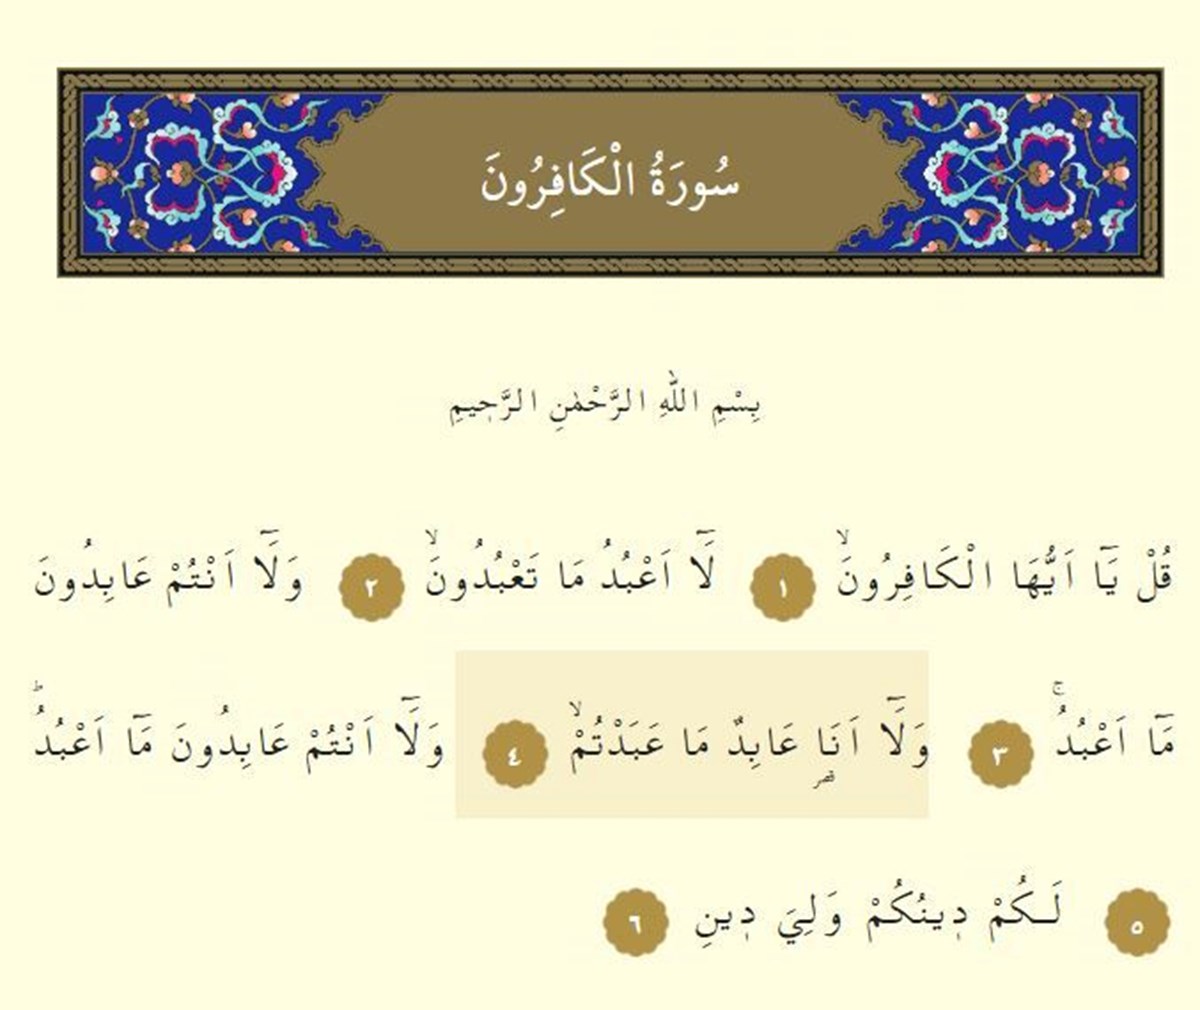 سُورَةُ الْكَافِرُونَ
بِسْمِ اللّٰهِ الرَّحْمٰنِ الرَّحٖيمِ
قُلْ يَٓا اَيُّهَا الْكَافِرُونَۙ ١ لَٓا اَعْبُدُ مَا تَعْبُدُونَۙ ٢ وَلَٓا اَنْتُمْ عَابِدُونَ
مَٓا اَعْبُدُۚ ٣ وَلَٓا اَنَا۬ عَابِدٌ مَا عَبَدْتُمْۙ ٤ وَلَٓا اَنْتُمْ عَابِدُونَ مَٓا اَعْبُدُؕ
٥ لَـكُمْ دٖينُكُمْ وَلِيَ دٖينِ ٦